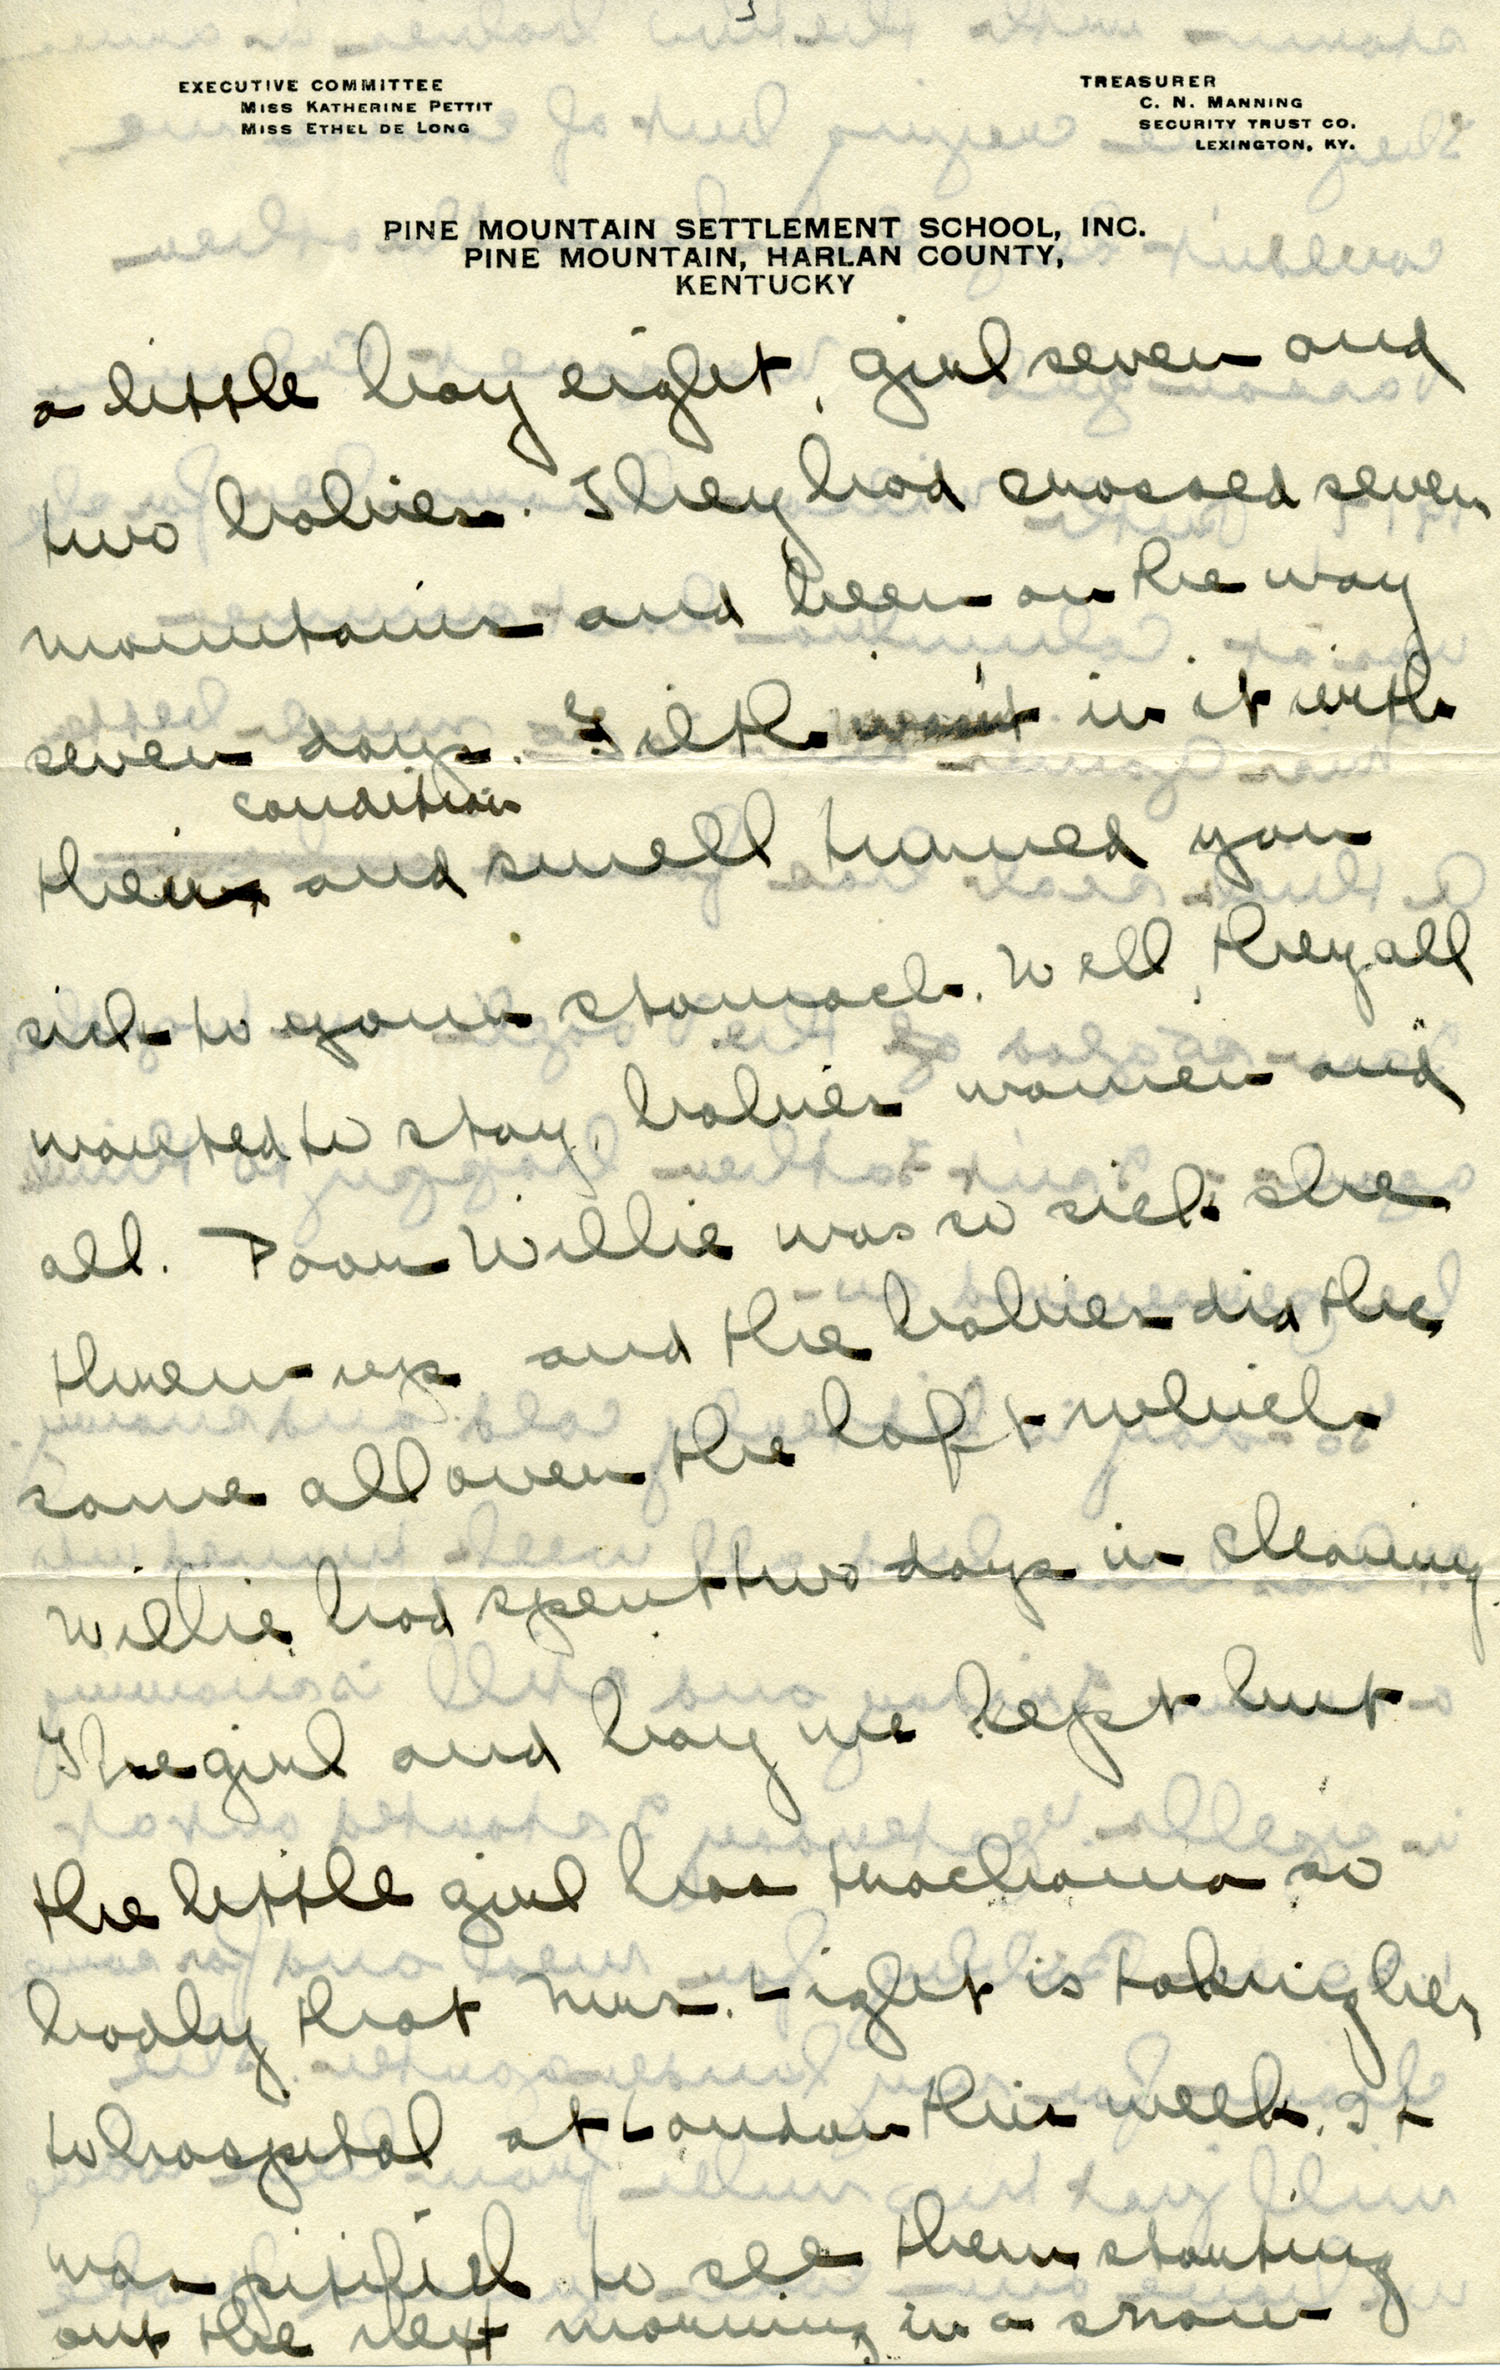 3
EXECUTIVE COMMITTEE
MISS KATHERINE PETTIT
MISS ETHEL DE LONG
TREASURER
C. N. MANNING
SECURITY TRUST CO.
LEXINGTON, KY.
PINE MOUNTAIN SETTLEMENT SCHOOL, INC.
PINE MOUNTAIN, HARLAN COUNTY,
KENTUCKY
a little boy eight, girl seven and
two babies. They had crossed seven
mountains and been on the way
seven days. Filth wasn't in it with
condition
their and smell turned you
sick to your stomach. Well, they all
wanted to stay, babies women and
all. Poor Willie was so sick she
threw up and the babies did the
same all over the loft which
Willie had spent two days in cleaning.
The girl and boy we kept but
the little girl has trachoma so
badly that Mrs. Zight is taking her
to hospital at London this week. It
was pitiful to see them starting
out the next morning in a snow